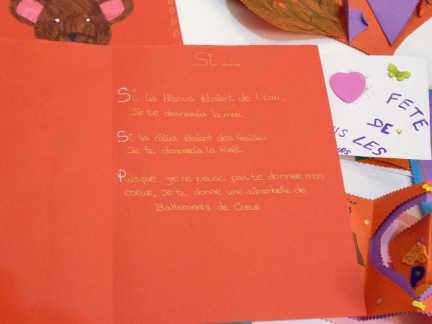 Si ....
Si les bisous étaient de l'eau,
Je te donnerais la mer.
Si les câlins étaient des feuilles
Je te donnerais la forêt.
Puisque je ne peux pas te donner mon
coeur, je te donne une ribambelle de
Battements de Coeur
FETE
DE
LES
P